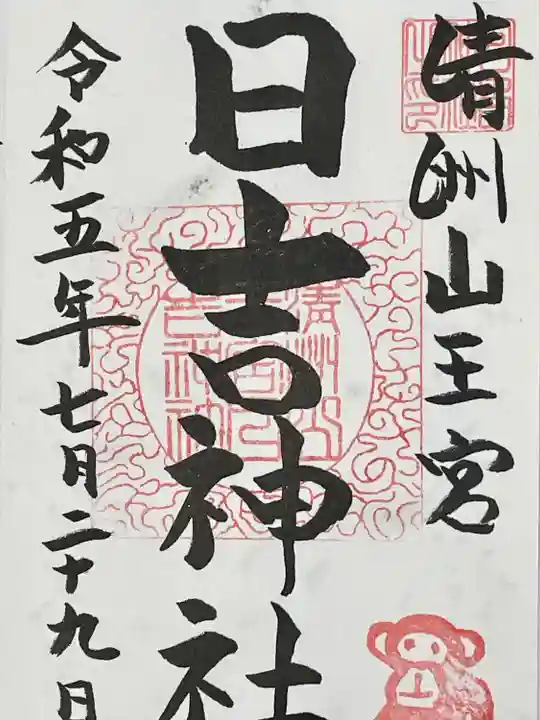 清洲山王宮
日吉神社
令和五年七月二十九日